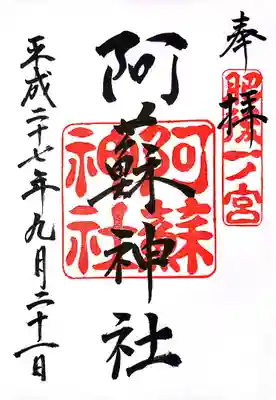 奉拝
肥後一ノ宮
阿蘇神社
阿蘇神社
平成二十七年九月二十一日